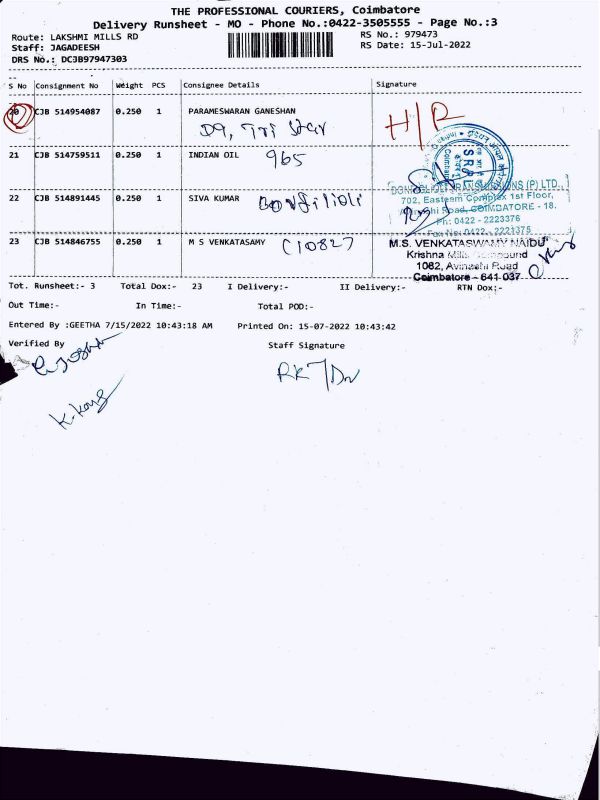 THE PROFESSIONAL COURIERS, Coimbatore
Delivery Runsheet - MO - Phone No.:0422-3505555 - Page No.:3
Route: LAKSHMI MILLS RD
RS No.: 979473
Staff: JAGADEESH
RS Date: 15-Jul-2022
DRS No.: DCJB97947303
S No Consignment No Weight PCS Consignee Details Signature
20 CJB 514954087 0.250 1 PARAMESWARAN GANESHAN H/R
D9, Tri Star
21 CJB 514759511 0.250 1 INDIAN OIL 965
22 CJB 514891445 0.250 1 SIVA KUMAR Bonfilioli
(P) LTD.,
702, Eastern Complex 1st Floor,
Road, COIMBATORE - 18.
Ph: 0422 - 2223376
Fax No: 0422 - 2221375
23 CJB 514846755 0.250 1 M S VENKATASAMY C10827
M.S. VENKATASWAMY NAIDU
Krishna Mills Compound
1062, Avinashi Road
Coimbatore - 641 037
Tot. Runsheet:- 3 Total Dox:- 23 I Delivery:- II Delivery:- RTN Dox:-
Out Time:- In Time:- Total POD:-
Entered By :GEETHA 7/15/2022 10:43:18 AM Printed On: 15-07-2022 10:43:42
Verified By Staff Signature